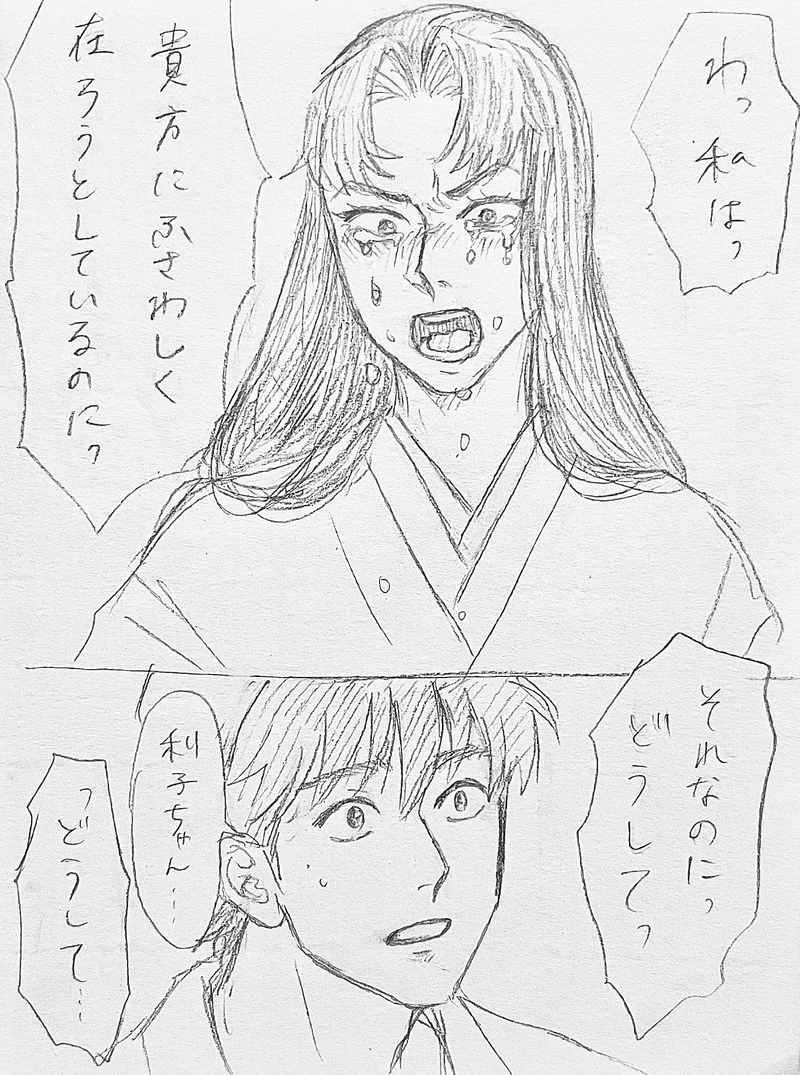 わっ
私はっ
貴方にふさわしく
在ろうとしているのにっ
それなのにっ
どうしてっ
利子ちゃん…
っどうして…